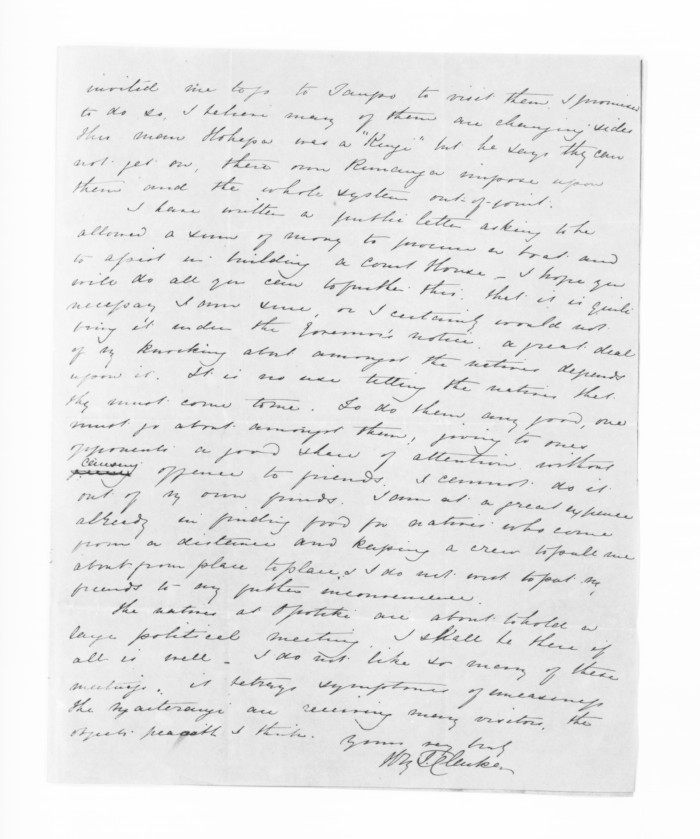 invited me to go to Taupo to visit them. I promised
to do so. I believe many of them are changing sides
this man Hohepa was a "Kingi" but he says they can
not get on, there own Runanga impose upon
them and the whole system out-of-joint.
I have written a public letter asking to be
allowed a sum of money to procure a boat and
to assist in building a Court House - I hope you
will do all you can to further this. that it is quite
necessary I am sure, or I certainly would not
bring it under the Governor's notice. a great deal
of my knocking about amongst the natives depends
upon it. It is no use telling the natives that
they must come to me. To do them any good, one
must go about amongst them, giving to ones
opponents a good share of attention without
causing offence to friends. I cannot do it
out of my own funds. I am at a great expence
already in finding food for natives who come
from a distance and keeping a crew to pull me
about from place to place, & I do not want to put my
friends to any further inconvenience.
The natives at Opotiki are about to hold a
large political meeting I shall be there if
all is well - I do not like so many of these
meetings. it betrays symptoms of uneasiness
the Ngaiterangi are receiving many visitors. the
object peaceable I think. Yours very truly
Wm T Clarke